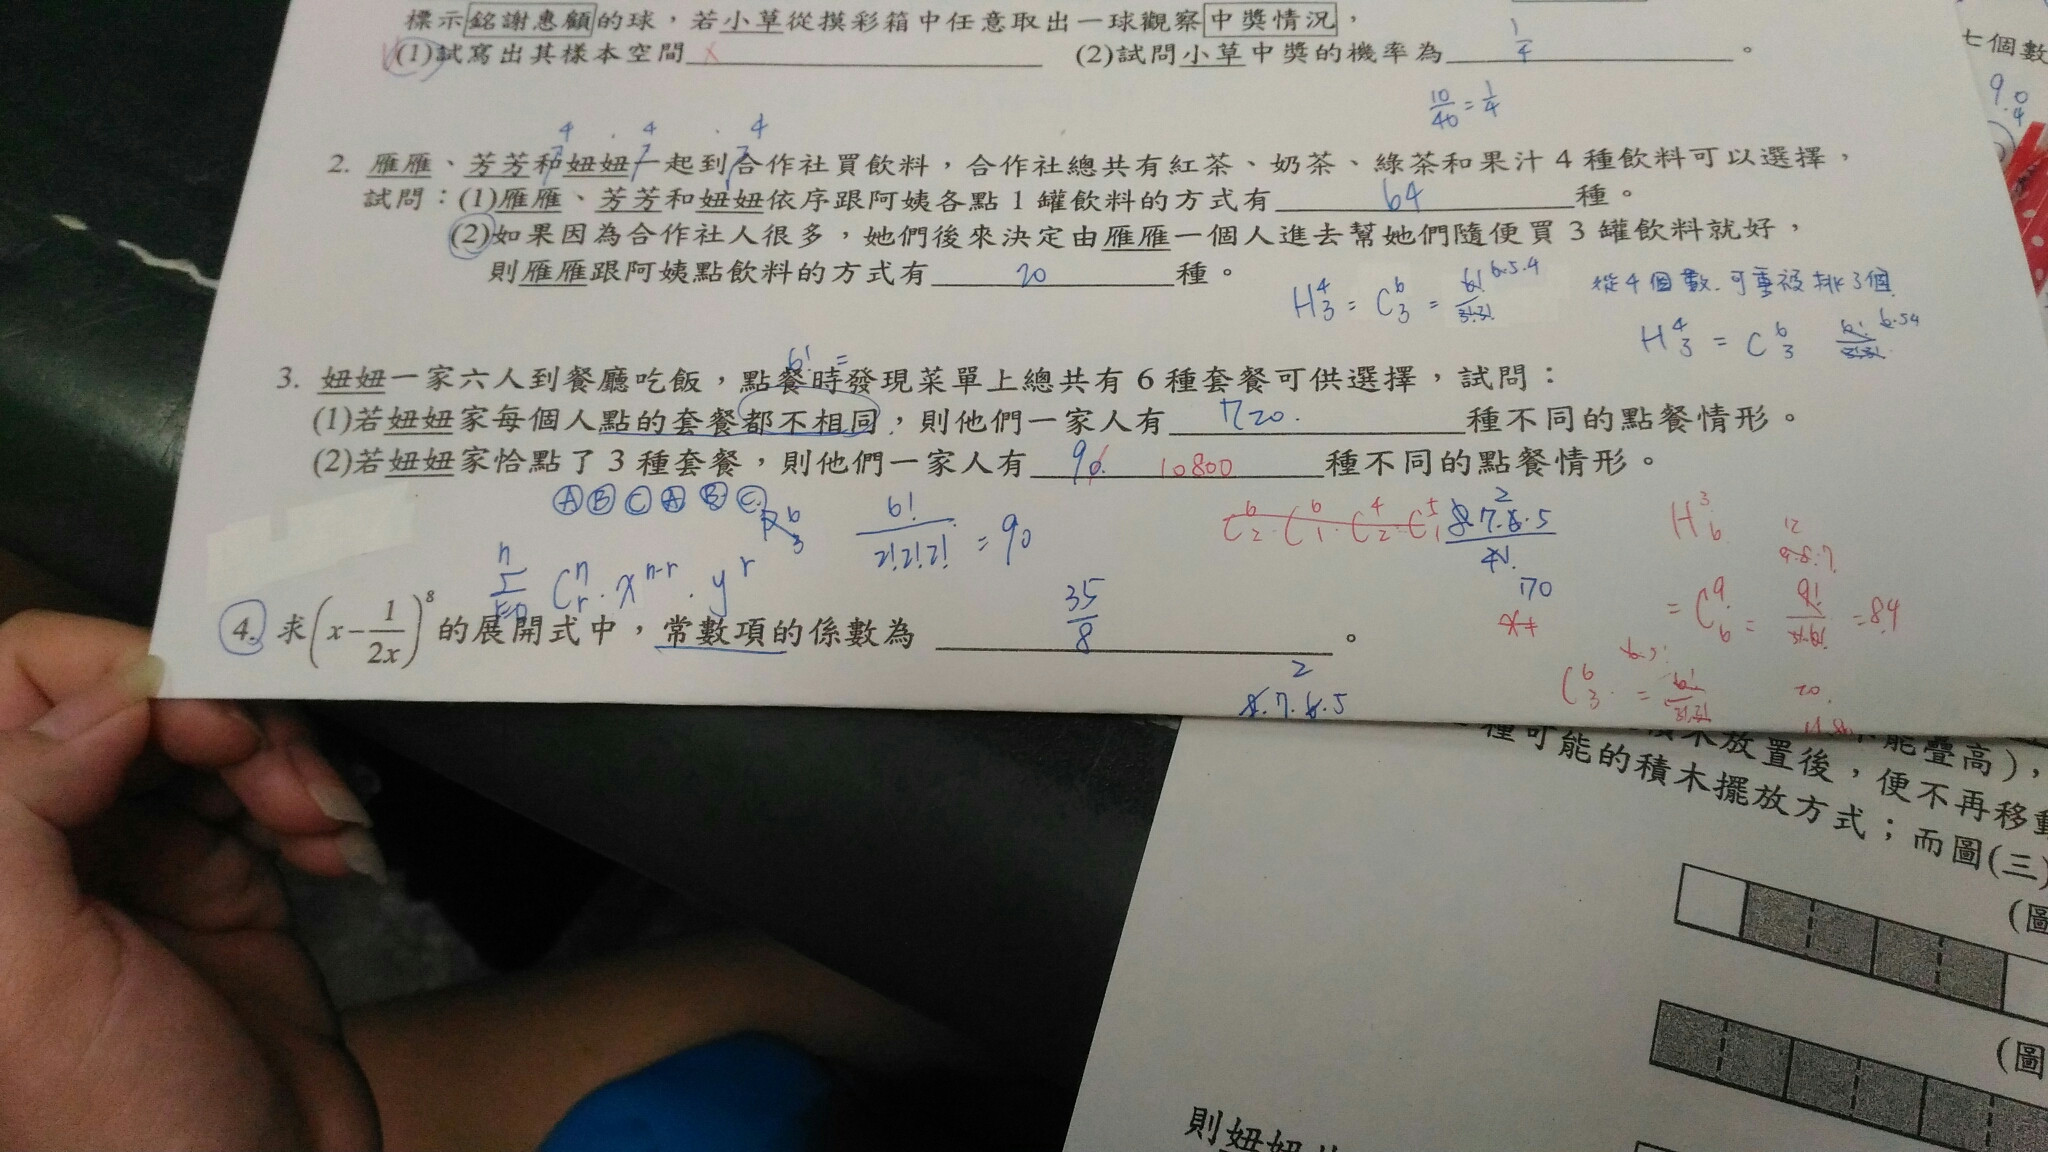 標示銘謝惠顧的球，若小草從摸彩箱中任意取出一球觀察中獎情況，
(1)試寫出其樣本空間 x (2)試問小草中獎的機率為 1/4 。
七個數
10/40 = 1/4
4 4 4
2. 雁雁、芳芳和妞妞一起到合作社買飲料，合作社總共有紅茶、奶茶、綠茶和果汁 4 種飲料可以選擇，
試問：(1)雁雁、芳芳和妞妞依序跟阿姨各點 1 罐飲料的方式有 64 種。
(2)如果因為合作社人很多，她們後來決定由雁雁一個人進去幫她們隨便買 3 罐飲料就好，
則雁雁跟阿姨點飲料的方式有 20 種。
H⁴₃ = C⁶₃ = 6!/3!3! 6.5.4
從4個數.可重複挑3個
H⁴₃ = C⁶₃ 6!/3!3! 6.54
6! =
3. 妞妞一家六人到餐廳吃飯，點餐時發現菜單上總共有 6 種套餐可供選擇，試問：
(1)若妞妞家每個人點的套餐都不相同，則他們一家人有 720. 種不同的點餐情形。
(2)若妞妞家恰點了 3 種套餐，則他們一家人有 90. 10800 種不同的點餐情形。
Ⓐ Ⓑ Ⓒ Ⓐ Ⓑ Ⓒ
6!/2!2!2! = 90
8.7.6.5/4!
2
70
H³₆
= C⁹₆ = 9!/ = 84
C⁶₃ =
20
Σ Cⁿᵣ . xⁿ⁻ʳ . yʳ
4. 求(x－1/2x)⁸的展開式中，常數項的係數為 35/8 。
2
8.7.6.5
積木放置後，便不再移動
種可能的積木擺放方式；而圖(三)
能疊高)，
(圖
(圖
則妞妞